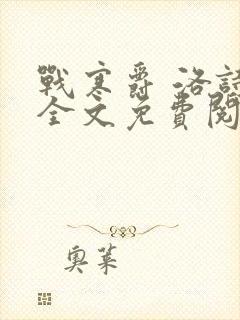 戰寒爵 洛語
全文免費閱
奧萊